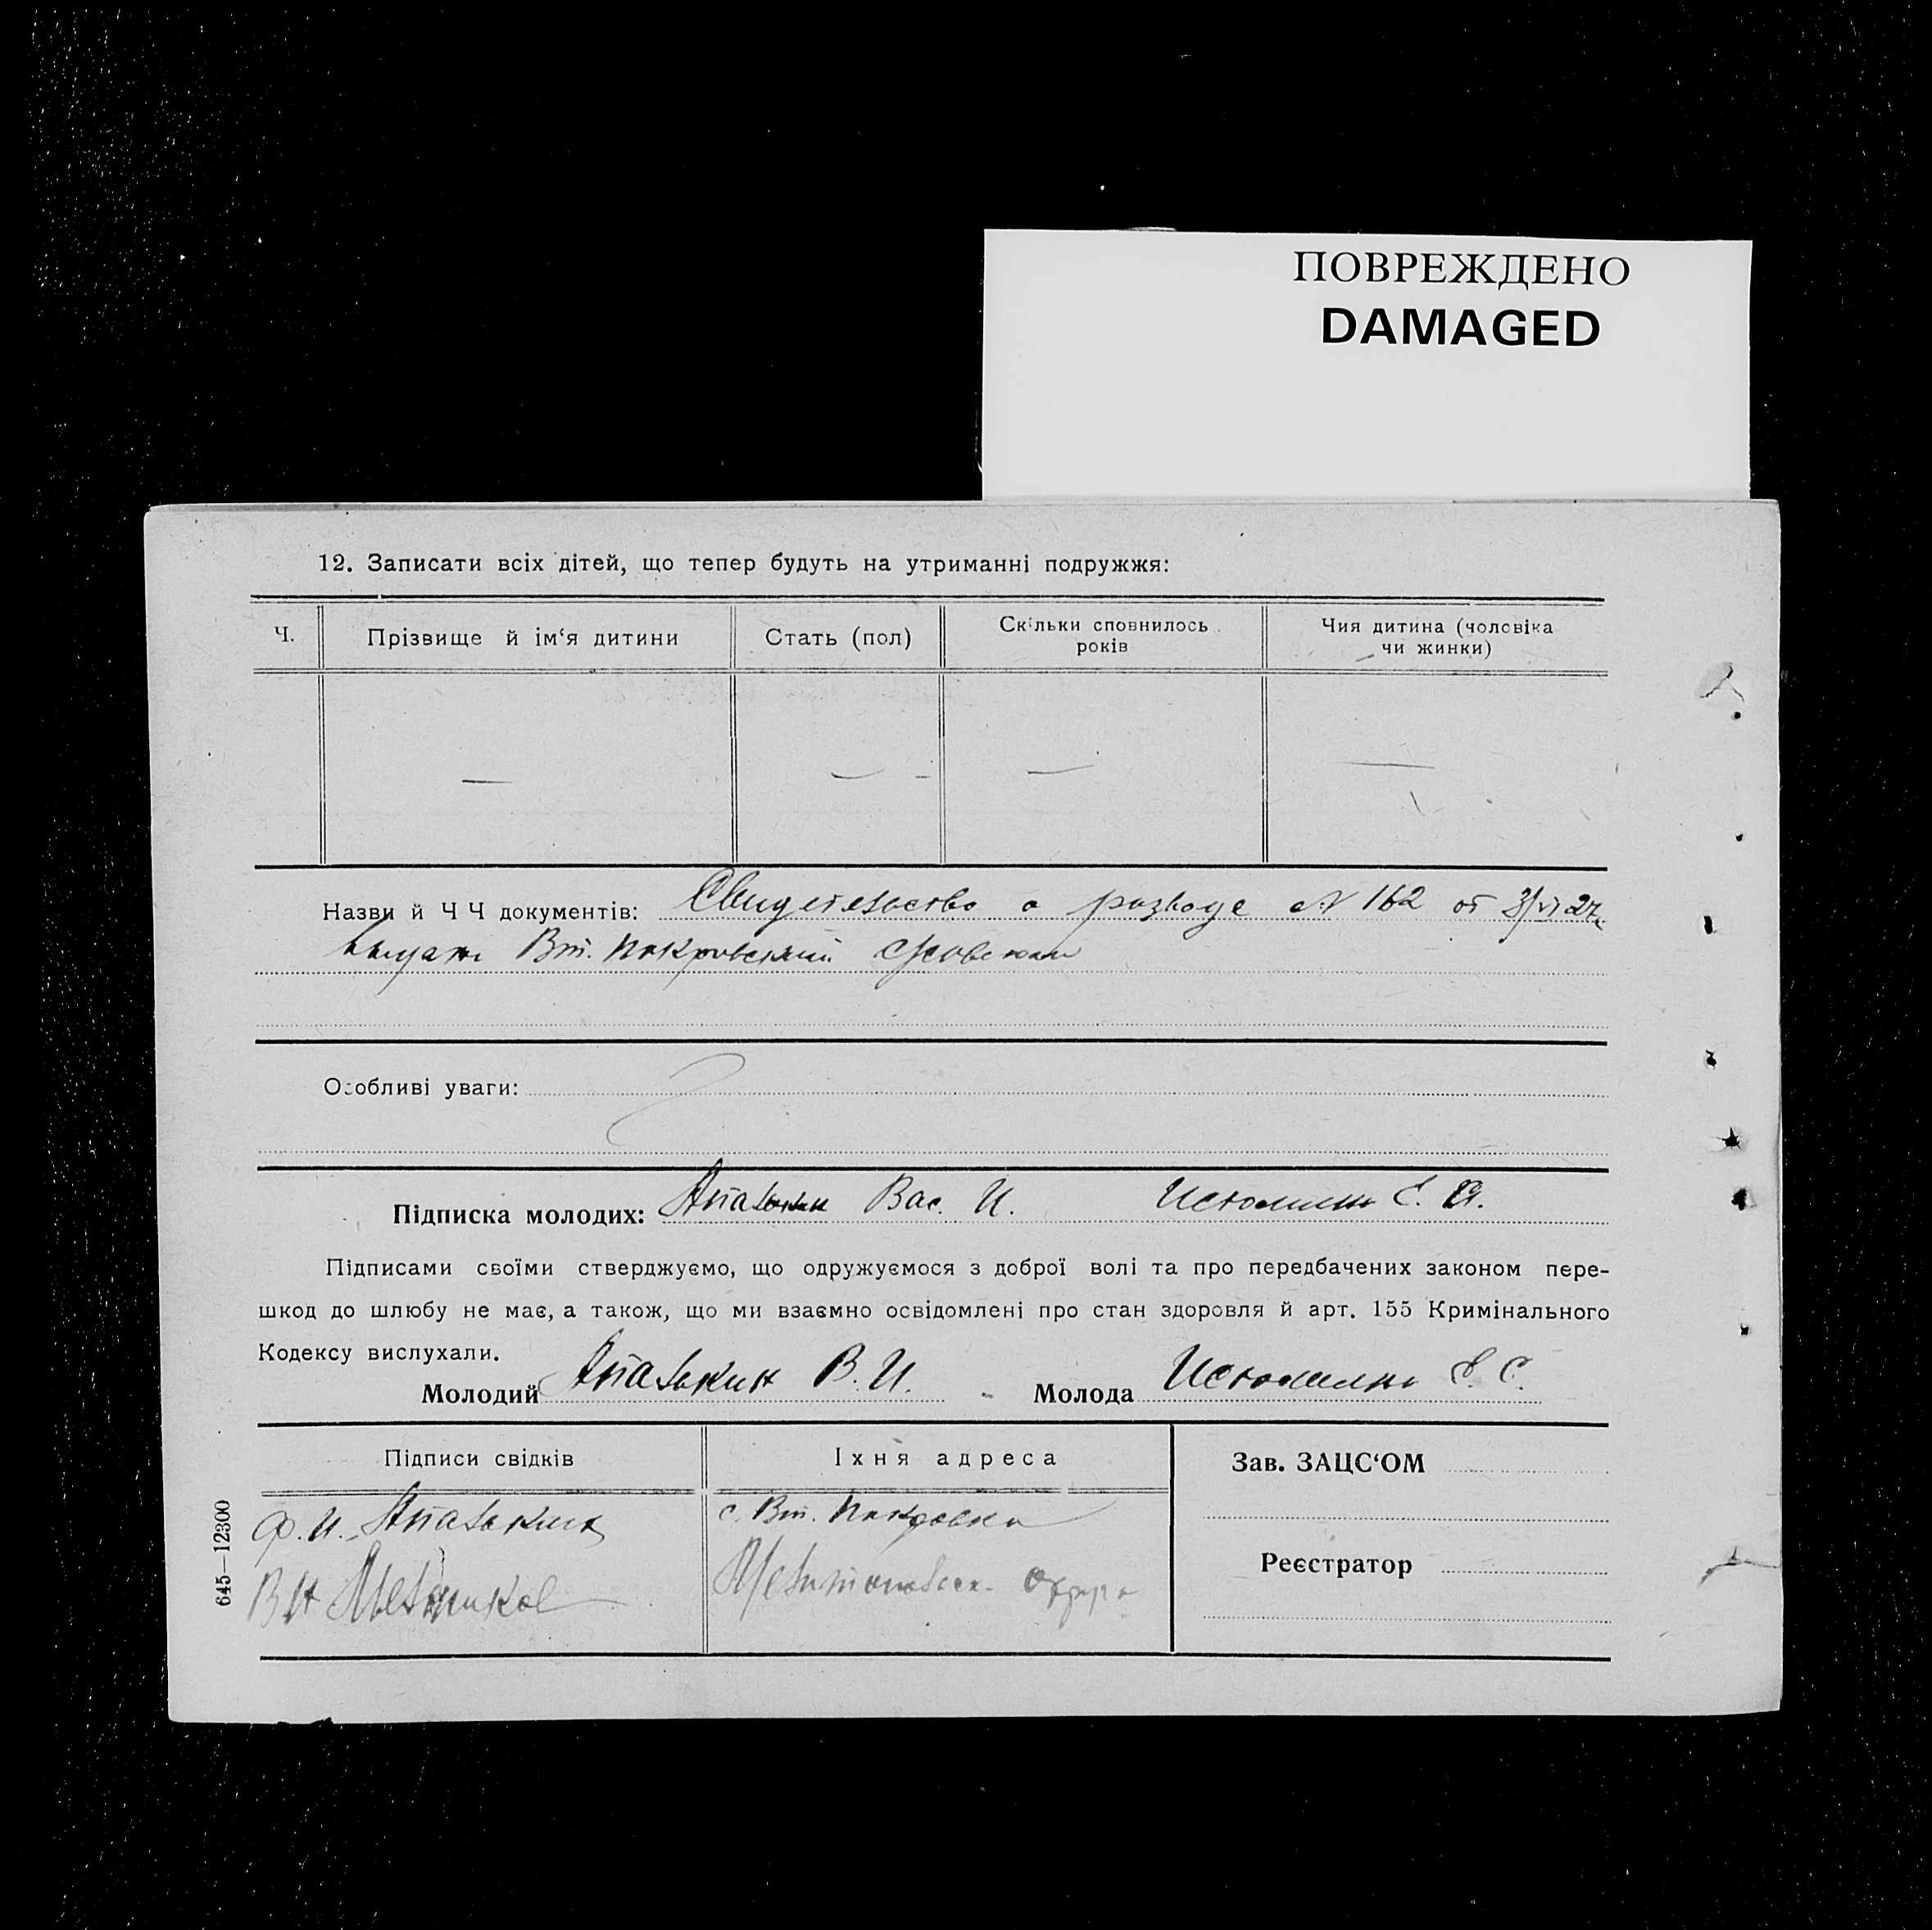 ПОВРЕЖДЕНО
DAMAGED
12. Записати всіх дітей, що тепер будуть на утриманні подружжя:
Ч.
Прізвище й ім‘я дитини
Стать (пол)
Скільки сповнилось років
Чия дитина (чоловіка чи жинки)
— — — —
Назви й Ч Ч документів: Свидетельство о разводе № 162 от 3/VI 27г.
Вт. Покровский
Особливі уваги:
Підписка молодих: Апалькин Вас. И. Истомина Е.
Підписами своїми стверджуємо, що одружуємося з доброї волі та про передбачених законом пере-
шкод до шлюбу не має, а також, що ми взаємно освідомлені про стан здоровля й арт. 155 Кримінального
Кодексу вислухали.
Молодий Апалькин В. И. Молода Истомина Е. С.
Підписи свідків
Їхня адреса
Зав. ЗАЦС‘ОМ
Ф. И. Апалькин
с. Вт. Покровка
Реєстратор
В И Мельников
Мелитопольск. округа
645—12300